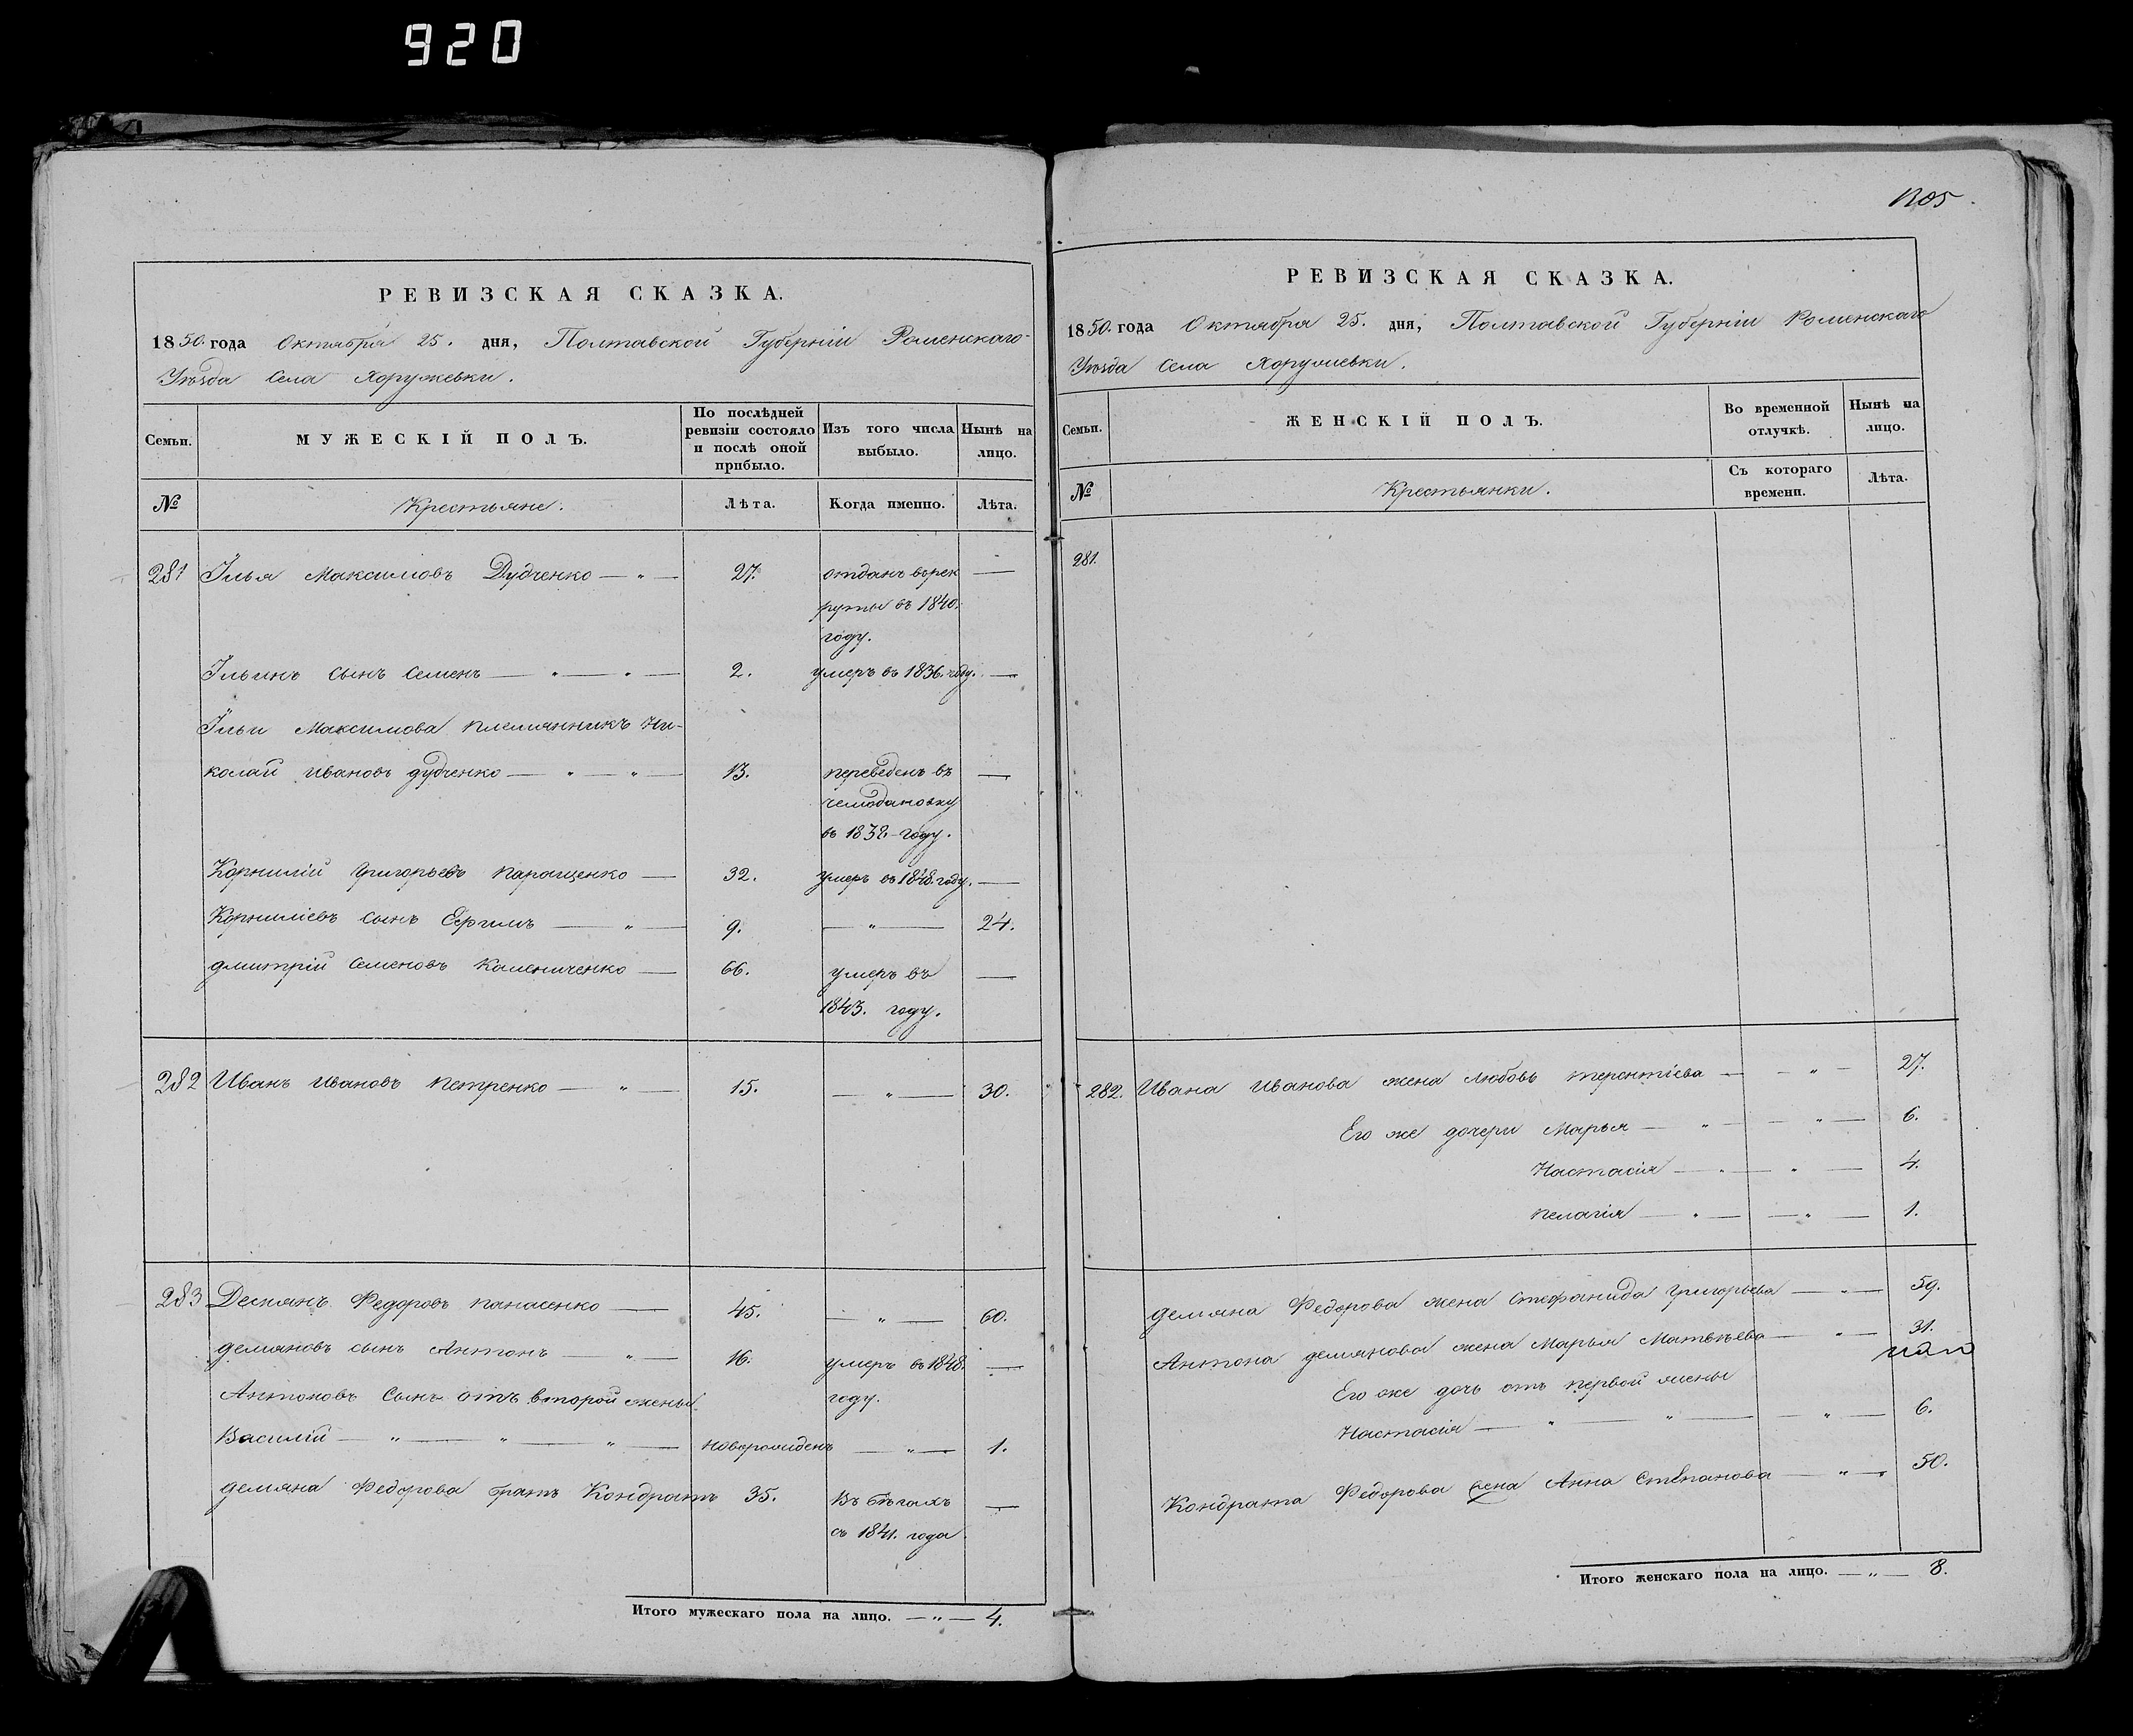 920
РЕВИЗСКАЯ СКАЗКА.
1850. года Октября 25. дня, Полтавской Губерніи Роменскаго
Уѣзда Села Хоружевки.
Семьи.
МУЖЕСКІЙ ПОЛЪ.
По послѣдней ревизіи состояло и послѣ оной прибыло.
Изъ того числа выбыло.
Нынѣ на лицо.
№
Крестьяне.
Лѣта.
Когда именно.
Лѣта.
281 Илья Максимовъ Дудченко — " — 27. отданъ въ рек —
руты въ 1840.
году.
Ильинъ сынъ Семенъ — " — " — 2. умеръ въ 1836. году. —
Ильи Максимова племянникъ Ни-
колай Ивановъ Дудченко — " — " — 13. переведенъ въ —
Чемодановку
въ 1832 году.
Корнилій Григорьевъ Паращенко — 32. умеръ въ 1848. году. —
Корниліевъ сынъ Ефимъ — " — 9. — " — 24.
Дмитрій Семеновъ Калениченко — 66. умеръ въ —
1843. году.
282 Иванъ Ивановъ Петренко — " — 15. — " — 30.
283 Демянъ Федоровъ Панасенко — 45. — " — 60.
Демяновъ сынъ Антонъ — " — 16. умеръ въ 1848. —
году.
Антоновъ сынъ отъ второй жены
Василій — " — " — " — новорожденъ — " — 1.
Демяна Федорова братъ Кондратъ 35. Въ бѣгахъ —
съ 1841. года
Итого мужескаго пола на лицо. — " — 4.
РЕВИЗСКАЯ СКАЗКА.
1850. года Октября 25. дня, Полтавской Губерніи Роменскаго
Уѣзда Села Хоружевки.
Семьи.
ЖЕНСКІЙ ПОЛЪ.
Во временной отлучкѣ.
Нынѣ на лицо.
№
Крестьянки.
Съ котораго времени.
Лѣта.
281.
282. Ивана Иванова жена Любовь Терентіева — — " — 27.
Его же дочери Марья — " — — " — 6.
Настасія — " — " — 4.
Пелагія — " — — " — 1.
Демяна Федорова жена Стефанида Григорьева — " — 59.
Антона Демянова жена Марья Матвѣева — " — 31.
Его же дочь отъ первой жены
Настасія — " — " — — " — 6.
Кондрата Федорова жена Анна Степанова — " — 50.
Итого женскаго пола на лицо. — " — 8.